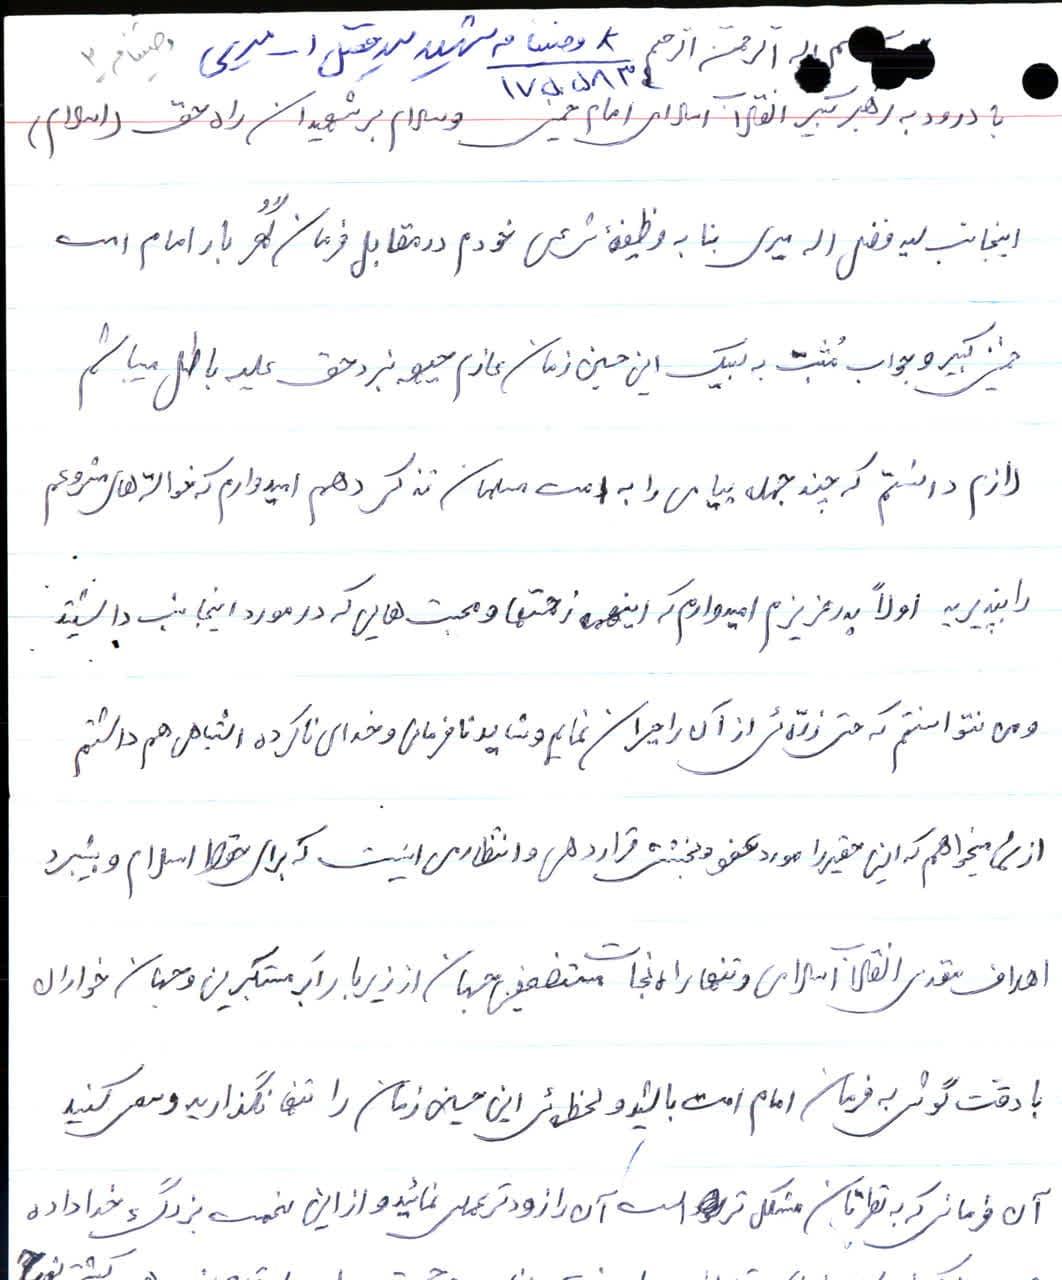 بسم اله الرحمن الرحیم وصیتنامه شهید سید فضل اله میری
وصیتنامه ۳
۱۷۵۰۵۸۳
با درود به رهبر کبیر انقلاب اسلامی امام خمینی وسلام بر شهیدان راه حق (اسلام)
اینجانب سید فضل اله میری بنا به وظیفهٔ شرعی خودم در مقابل فرمان گُهر بار امام امت
خمینی کبیر و جواب مُثبت به لبیک این حسین زمان عازم جبهه نبرد حق علیه باطل میباشم
لازم دانستم که چند جمله پیامی را به امت مسلمان تذکر دهم امیدوارم که خواسته های مشروعم
را بپذیرید اولاً پدر عزیزم امیدوارم که اینهمه زحمتها و محبت هایی که در مورد اینجانب داشتید
و من نتوانستم که حتی ذرّه ئی از آن را جبران نمایم و شاید نافرمانی و خدای ناکرده اشتباهی هم داشتم
از شما میخواهم که این حقیر را مورد عفو و بخشش قرار دهی و انتظارمی اینست که برای حفظ اسلام و پیشبرد
اهداف مقدس انقلاب اسلامی و تنها راه نجات مستضعفین جهان از زیر بار ابر مستکبرین و جهان خواران
با دقت گوش به فرمان امام امت باشید و لحظه ئی این حسین زمان را تنها نگذارید و سعی کنید
آن فرمانی که به نظرتان مشکل تر است آن را زودتر عملی نمائید و از این نعمت بزرگ خدا داده